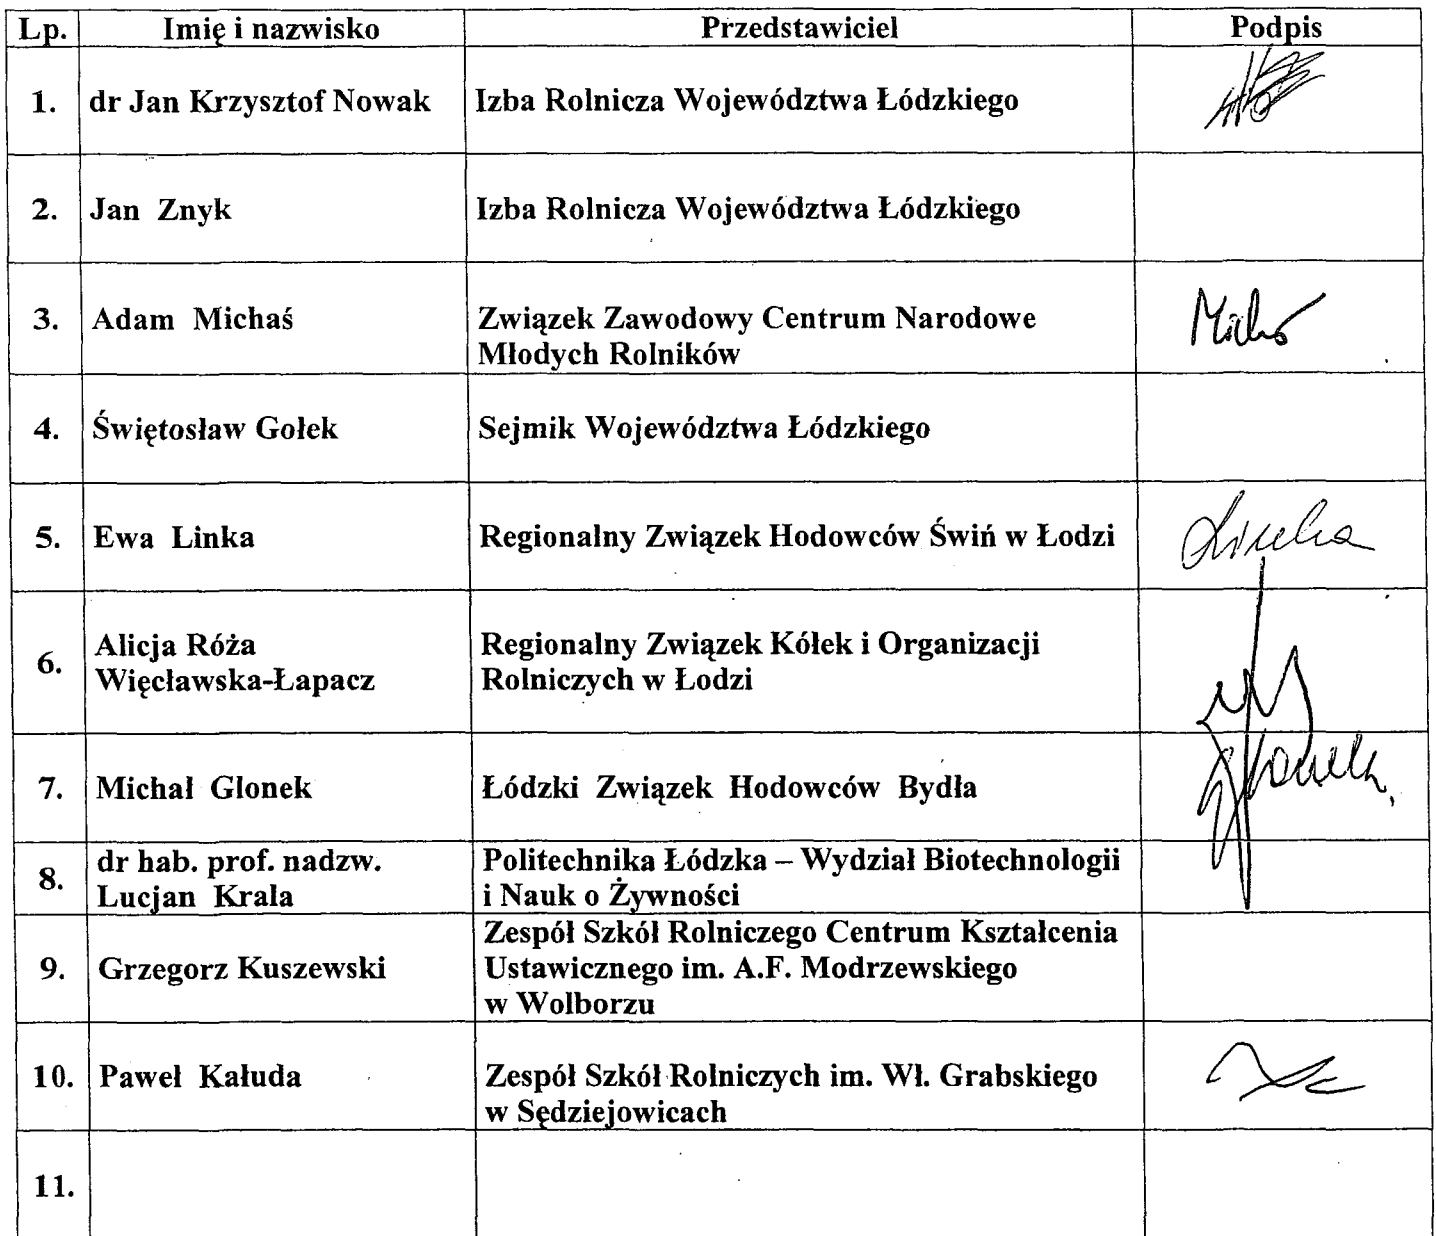 Lp. Imię i nazwisko Przedstawiciel Podpis
1. dr Jan Krzysztof Nowak Izba Rolnicza Województwa Łódzkiego
2. Jan Znyk Izba Rolnicza Województwa Łódzkiego
3. Adam Michaś Związek Zawodowy Centrum Narodowe
Młodych Rolników
4. Świętosław Gołek Sejmik Województwa Łódzkiego
5. Ewa Linka Regionalny Związek Hodowców Świń w Łodzi Linka
6. Alicja Róża
Więcławska-Łapacz
Regionalny Związek Kółek i Organizacji
Rolniczych w Łodzi
7. Michał Glonek Łódzki Związek Hodowców Bydła
8. dr hab. prof. nadzw.
Lucjan Krala
Politechnika Łódzka – Wydział Biotechnologii
i Nauk o Żywności
9. Grzegorz Kuszewski
Zespół Szkół Rolniczego Centrum Kształcenia
Ustawicznego im. A.F. Modrzewskiego
w Wolborzu
10. Paweł Kałuda Zespół Szkół Rolniczych im. Wł. Grabskiego
w Sędziejowicach
11.